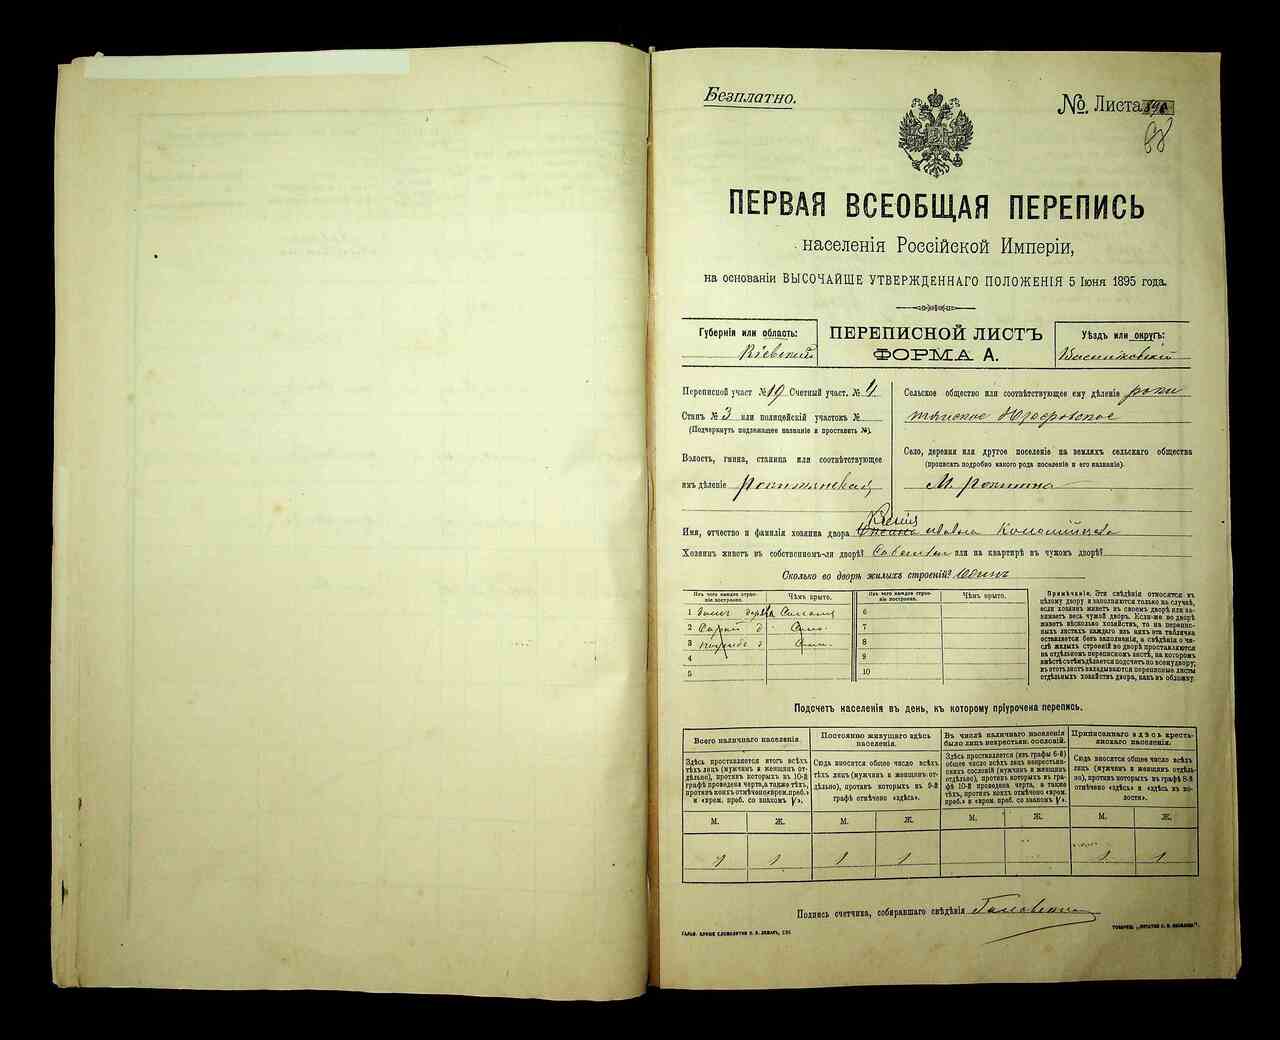 Безплатно.
№. Листа
68
ПЕРВАЯ ВСЕОБЩАЯ ПЕРЕПИСЬ
населенія Россійской Имперіи,
на основаніи ВЫСОЧАЙШЕ УТВЕРЖДЕННАГО ПОЛОЖЕНІЯ 5 Іюня 1895 года.
Губернія или область:
Кіевский
ПЕРЕПИСНОЙ ЛИСТЪ
ФОРМА А.
Уѣздъ или округъ:
Васильковскій
Переписной участ. №19 Счетный участ. № 4
Станъ № 3 или полицейскій участокъ №
(Подчеркнуть надлежащее названіе и проставить №).
Волость, гмина, станица или соотвѣтствующее
имъ дѣленіе Рокитянская
Сельское общество или соотвѣтствующее ему дѣленіе Роки
тянское
Село, деревня или другое поселеніе на земляхъ сельскаго общества
(прописать подробно какого рода поселеніе и его названіе).
М. Рокитна
Имя, отчество и фамилія хозяина двора
Хозяинъ живетъ въ собственномъ-ли дворѣ? или на квартирѣ въ чужомъ дворѣ?
Сколько во дворѣ жилыхъ строеній? Одинъ
Изъ чего каждое строеніе построено.
Чѣмъ крыто.
Изъ чего каждое строеніе построено.
Чѣмъ крыто.
1
2
3
4
5
6
7
8
9
10
Примѣчаніе. Эти свѣдѣнія относятся къ
цѣлому двору и заполняются только на случаѣ,
если хозяинъ живетъ въ своемъ дворѣ или за-
нимаетъ весь чужой дворъ. Если-же во дворѣ
живетъ нѣсколько хозяйствъ, то на перепис-
ныхъ листахъ каждаго изъ нихъ эта табличка
оставляется безъ заполненія, а свѣдѣнія о чи-
слѣ жилыхъ строеній во дворѣ проставляются
на отдѣльномъ переписномъ листѣ, на которомъ
вмѣстѣ съ тѣмъ дѣлается подсчетъ по всему двору;
въ этотъ листъ вкладываются переписные листы
отдѣльныхъ хозяйствъ двора, какъ въ обложку.
Подсчетъ населенія въ день, къ которому пріурочена перепись.
Всего наличнаго населенія.
Постоянно живущаго здѣсь населенія.
Въ числѣ наличнаго населенія было лицъ некрестьян. сословій.
Приписаннаго здѣсь крестьянскаго населенія.
Здѣсь проставляется итогъ всѣхъ
тѣхъ лицъ (мужчинъ и женщинъ от-
дѣльно), противъ которыхъ въ 10-й
графѣ проведена черта, а также тѣхъ,
противъ коихъ отмѣчено «врем. преб.»
и «врем. преб. со знакомъ V».
Сюда вносится общее число всѣхъ
тѣхъ лицъ (мужчинъ и женщинъ от-
дѣльно), противъ которыхъ въ 9-й
графѣ отмѣчено «здѣсь».
Здѣсь проставляется (изъ графы 6-й)
общее число всѣхъ лицъ некрестьян-
скихъ сословій (мужчинъ и женщинъ
отдѣльно), противъ которыхъ въ гра-
фѣ 10-й проведена черта, а также
тѣхъ, противъ коихъ отмѣчено «врем.
преб.» и «врем. преб. со знакомъ V».
Сюда вносится общее число всѣхъ
лицъ (мужчинъ и женщинъ отдѣль-
но), противъ которыхъ въ графѣ 8-й
отмѣчено «здѣсь» и «здѣсь въ во-
лости».
М. Ж. М. Ж. М. Ж. М. Ж.
1 1 1 1 1 1
Подпись счетчика, собиравшаго свѣдѣнія